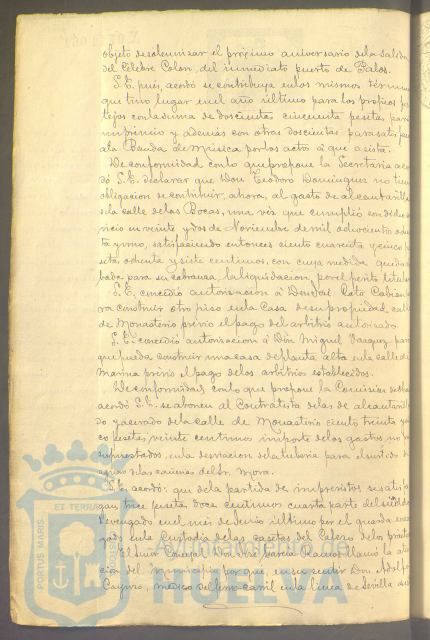 objeto de solemnizar el próximo aniversario de la salida
del Célebre Colon, del inmediato puerto de Palos.
S. E. pues, acordó se contribuya en los mismos términos
que tuvo lugar en el año último para los propios fes
tejos con la suma de doscientas cincuenta pesetas para
imprevisto y además con otras doscientas para satisfacer
a la Banda de Música por los actos á que asista.
De conformidad con lo que propone la Secretaria acor
dó S. E. declarar que Don Teodoro Dominguez no tiene
obligacion de contribuir, ahora, al gasto de alcantarilla
de la calle de las Bocas, una vez que cumplió con dicho
en veinte y dos de Noviembre de mil ochocientos ochen
ta y uno, satisfaciendo entonces ciento cuarenta y cinco pe
setas ochenta y siete centimos, con cuya medida queda
para su cobranza, la liquidacion, por el perito titular
S. E. concedió autorizacion á Don José Coto
ra construir otro piso en la Casa de su propiedad, calle
de Monasterio prévio el pago del arbitrio autorizado.
S. E. concedió autorizacion á Don Miguel Vazquez para
que pueda construir una casa de planta alta en la calle de
Marina prévio el pago de los arbitrios establecidos.
De conformidad con lo que propone la Comision de obras
acordó S. E. se abonen al Contratista de las de alcantarilla
do y acerado de la calle de Monasterio ciento treinta y cin
co pesetas, veinte centimos importe de los gastos no
supuestados, en la desviacion de la tuberia para el surtido de
de las cañerias del Sr. Mora.
S. E. acordó: que de la partida de imprevistos se satisfa
gan trece pesetas doce centimos cuarta parte del sueldo
devengado en el mes de Junio último por el guarda encar
gado en la Custodia de las casetas del
El Señor Garcia Ramos llamó la aten
cion del Municipio porque, en su sentir Don Adolfo
médico del ferro-carril en la linea de Sevilla
PORTUS MARIS
ET TERRAE
Ayuntamiento de
HUELVA